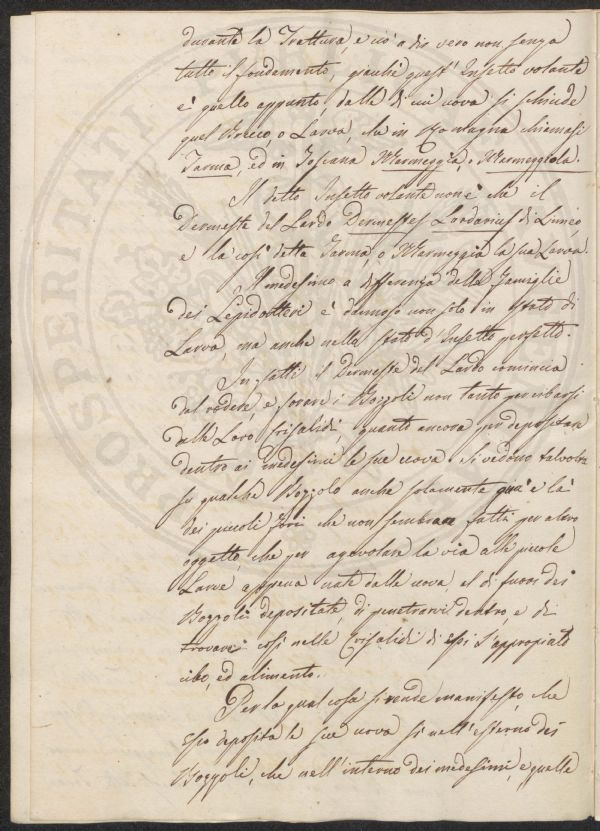 durante la Trattura, e ciò a dir vero non senza
tutto il fondamento, giacchè quest' Insetto volante
è quello appunto, dalle di cui uova si schiude
quel Baco, o Larva, che in Romagna chiamasi
Tarma, ed in Toscana Marmeggia, o Marmeggiola.
Il detto Insetto volante non è che il
Dermeste del Lardo Dermestes Lardarius di Linneo,
e la così detta Tarma, o Marmeggia la sua Larva.
Il medesimo a differenza della Famiglie
dei Lepidotteri è dannoso non solo in stato di
Larva, ma anche nello stato d'Insetto perfetto.
In fatti il Dermeste del Lardo comincia
dal rodere, e forare i Bozzoli non tanto per cibarsi
delle Loro Crisalidi, quanto ancora per depositare
dentro ai medesimi le sue uova. Si vedono talvolta
su qualche Bozzolo anche solamente quà e là
dei piccoli Fori che non sembrano fatti per altro
oggetto, che per agevolare la via alle piccole
Larve appena nate dalle uova, al di fuori dei
Bozzoli depositate, di penetrarvi dentro, e di
trovarvi così nelle Crisalidi di essi l'appropriato
cibo, ed alimento.
Per la qual cosa si rende manifesto, che
esso deposita le sue uova sì nell'esterno dei
Bozzoli, che nell'interno dei medesimi, e quelle
PROSPERITATI